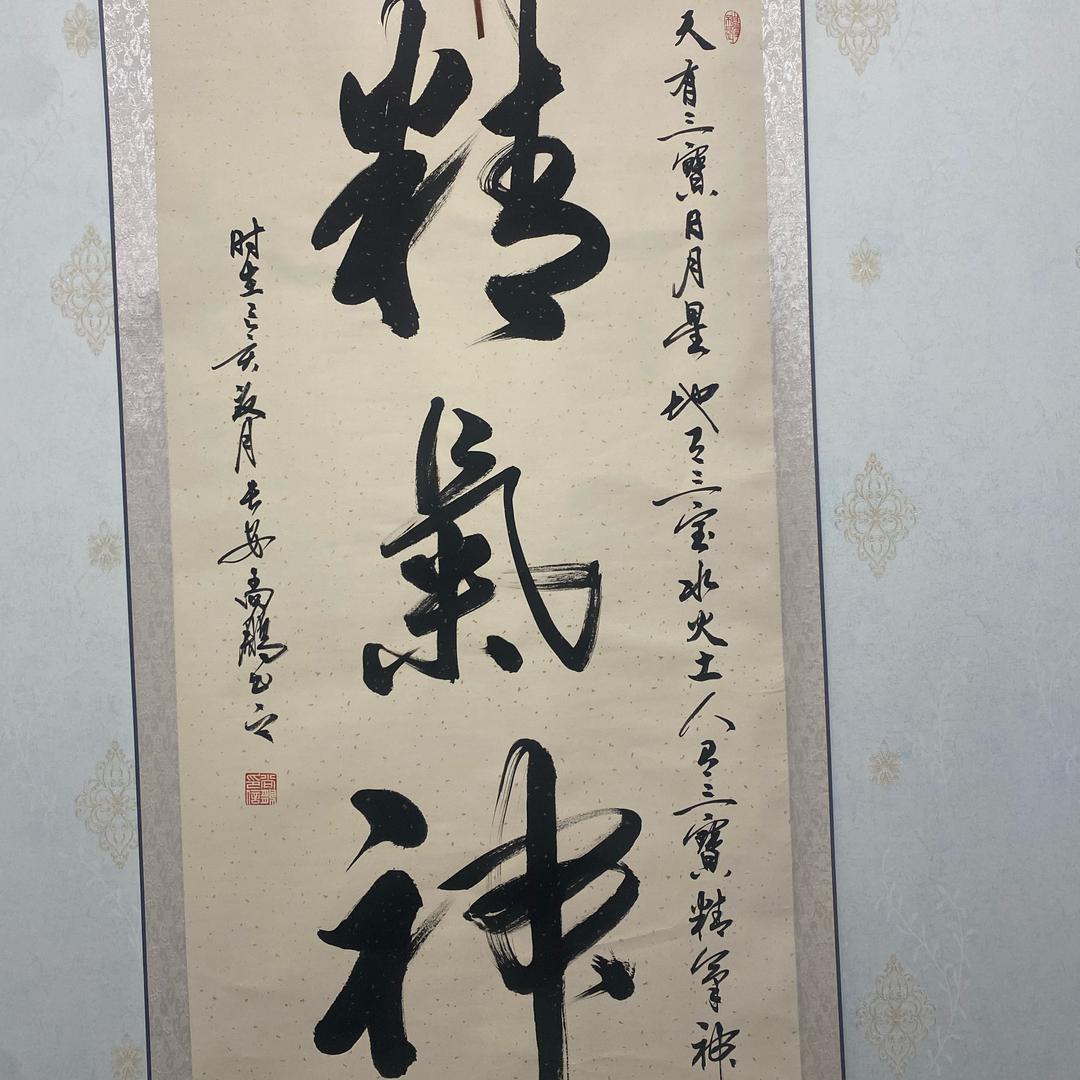 天有三寶日月星地有三宝水火土人有三寶精氣神
精氣神
时在己亥荷月长安尚鹏书